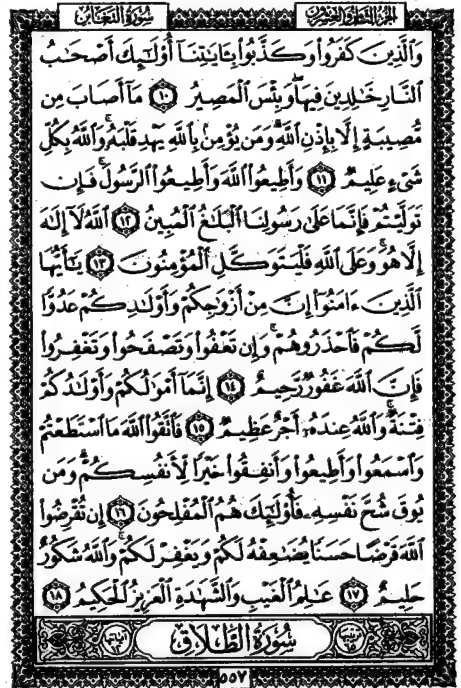 الجزء الثامن والعشرون سورة التغابن
وَالَّذِينَ كَفَرُوا۟ وَكَذَّبُوا۟ بِـَٔايَـٰتِنَآ أُو۟لَـٰٓئِكَ أَصْحَـٰبُ
النَّارِ خَـٰلِدِينَ فِيهَا ۖ وَبِئْسَ الْمَصِيرُ ١٠ مَآ أَصَابَ مِن
مُّصِيبَةٍ إِلَّا بِإِذْنِ اللَّهِ ۗ وَمَن يُؤْمِنۢ بِاللَّهِ يَهْدِ قَلْبَهُۥ ۚ وَاللَّهُ بِكُلِّ
شَىْءٍ عَلِيمٌ ١١ وَأَطِيعُوا۟ اللَّهَ وَأَطِيعُوا۟ الرَّسُولَ ۚ فَإِن
تَوَلَّيْتُمْ فَإِنَّمَا عَلَىٰ رَسُولِنَا الْبَلَـٰغُ الْمُبِينُ ١٢ اللَّهُ لَآ إِلَـٰهَ
إِلَّا هُوَ ۚ وَعَلَى اللَّهِ فَلْيَتَوَكَّلِ الْمُؤْمِنُونَ ١٣ يَـٰٓأَيُّهَا
الَّذِينَ ءَامَنُوٓا۟ إِنَّ مِنْ أَزْوَٰجِكُمْ وَأَوْلَـٰدِكُمْ عَدُوًّا
لَّكُمْ فَاحْذَرُوهُمْ ۚ وَإِن تَعْفُوا۟ وَتَصْفَحُوا۟ وَتَغْفِرُوا۟
فَإِنَّ اللَّهَ غَفُورٌ رَّحِيمٌ ١٤ إِنَّمَآ أَمْوَٰلُكُمْ وَأَوْلَـٰدُكُمْ
فِتْنَةٌ ۚ وَاللَّهُ عِندَهُۥٓ أَجْرٌ عَظِيمٌ ١٥ فَاتَّقُوا۟ اللَّهَ مَا اسْتَطَعْتُمْ
وَاسْمَعُوا۟ وَأَطِيعُوا۟ وَأَنفِقُوا۟ خَيْرًا لِّأَنفُسِكُمْ ۗ وَمَن
يُوقَ شُحَّ نَفْسِهِۦ فَأُو۟لَـٰٓئِكَ هُمُ الْمُفْلِحُونَ ١٦ إِن تُقْرِضُوا۟
اللَّهَ قَرْضًا حَسَنًا يُضَـٰعِفْهُ لَكُمْ وَيَغْفِرْ لَكُمْ ۚ وَاللَّهُ شَكُورٌ
حَلِيمٌ ١٧ عَـٰلِمُ الْغَيْبِ وَالشَّهَـٰدَةِ الْعَزِيزُ الْحَكِيمُ ١٨
ترتيبها ٦٥ سُورَةُ الطَّلَاقِ آياتها
٥٥٧